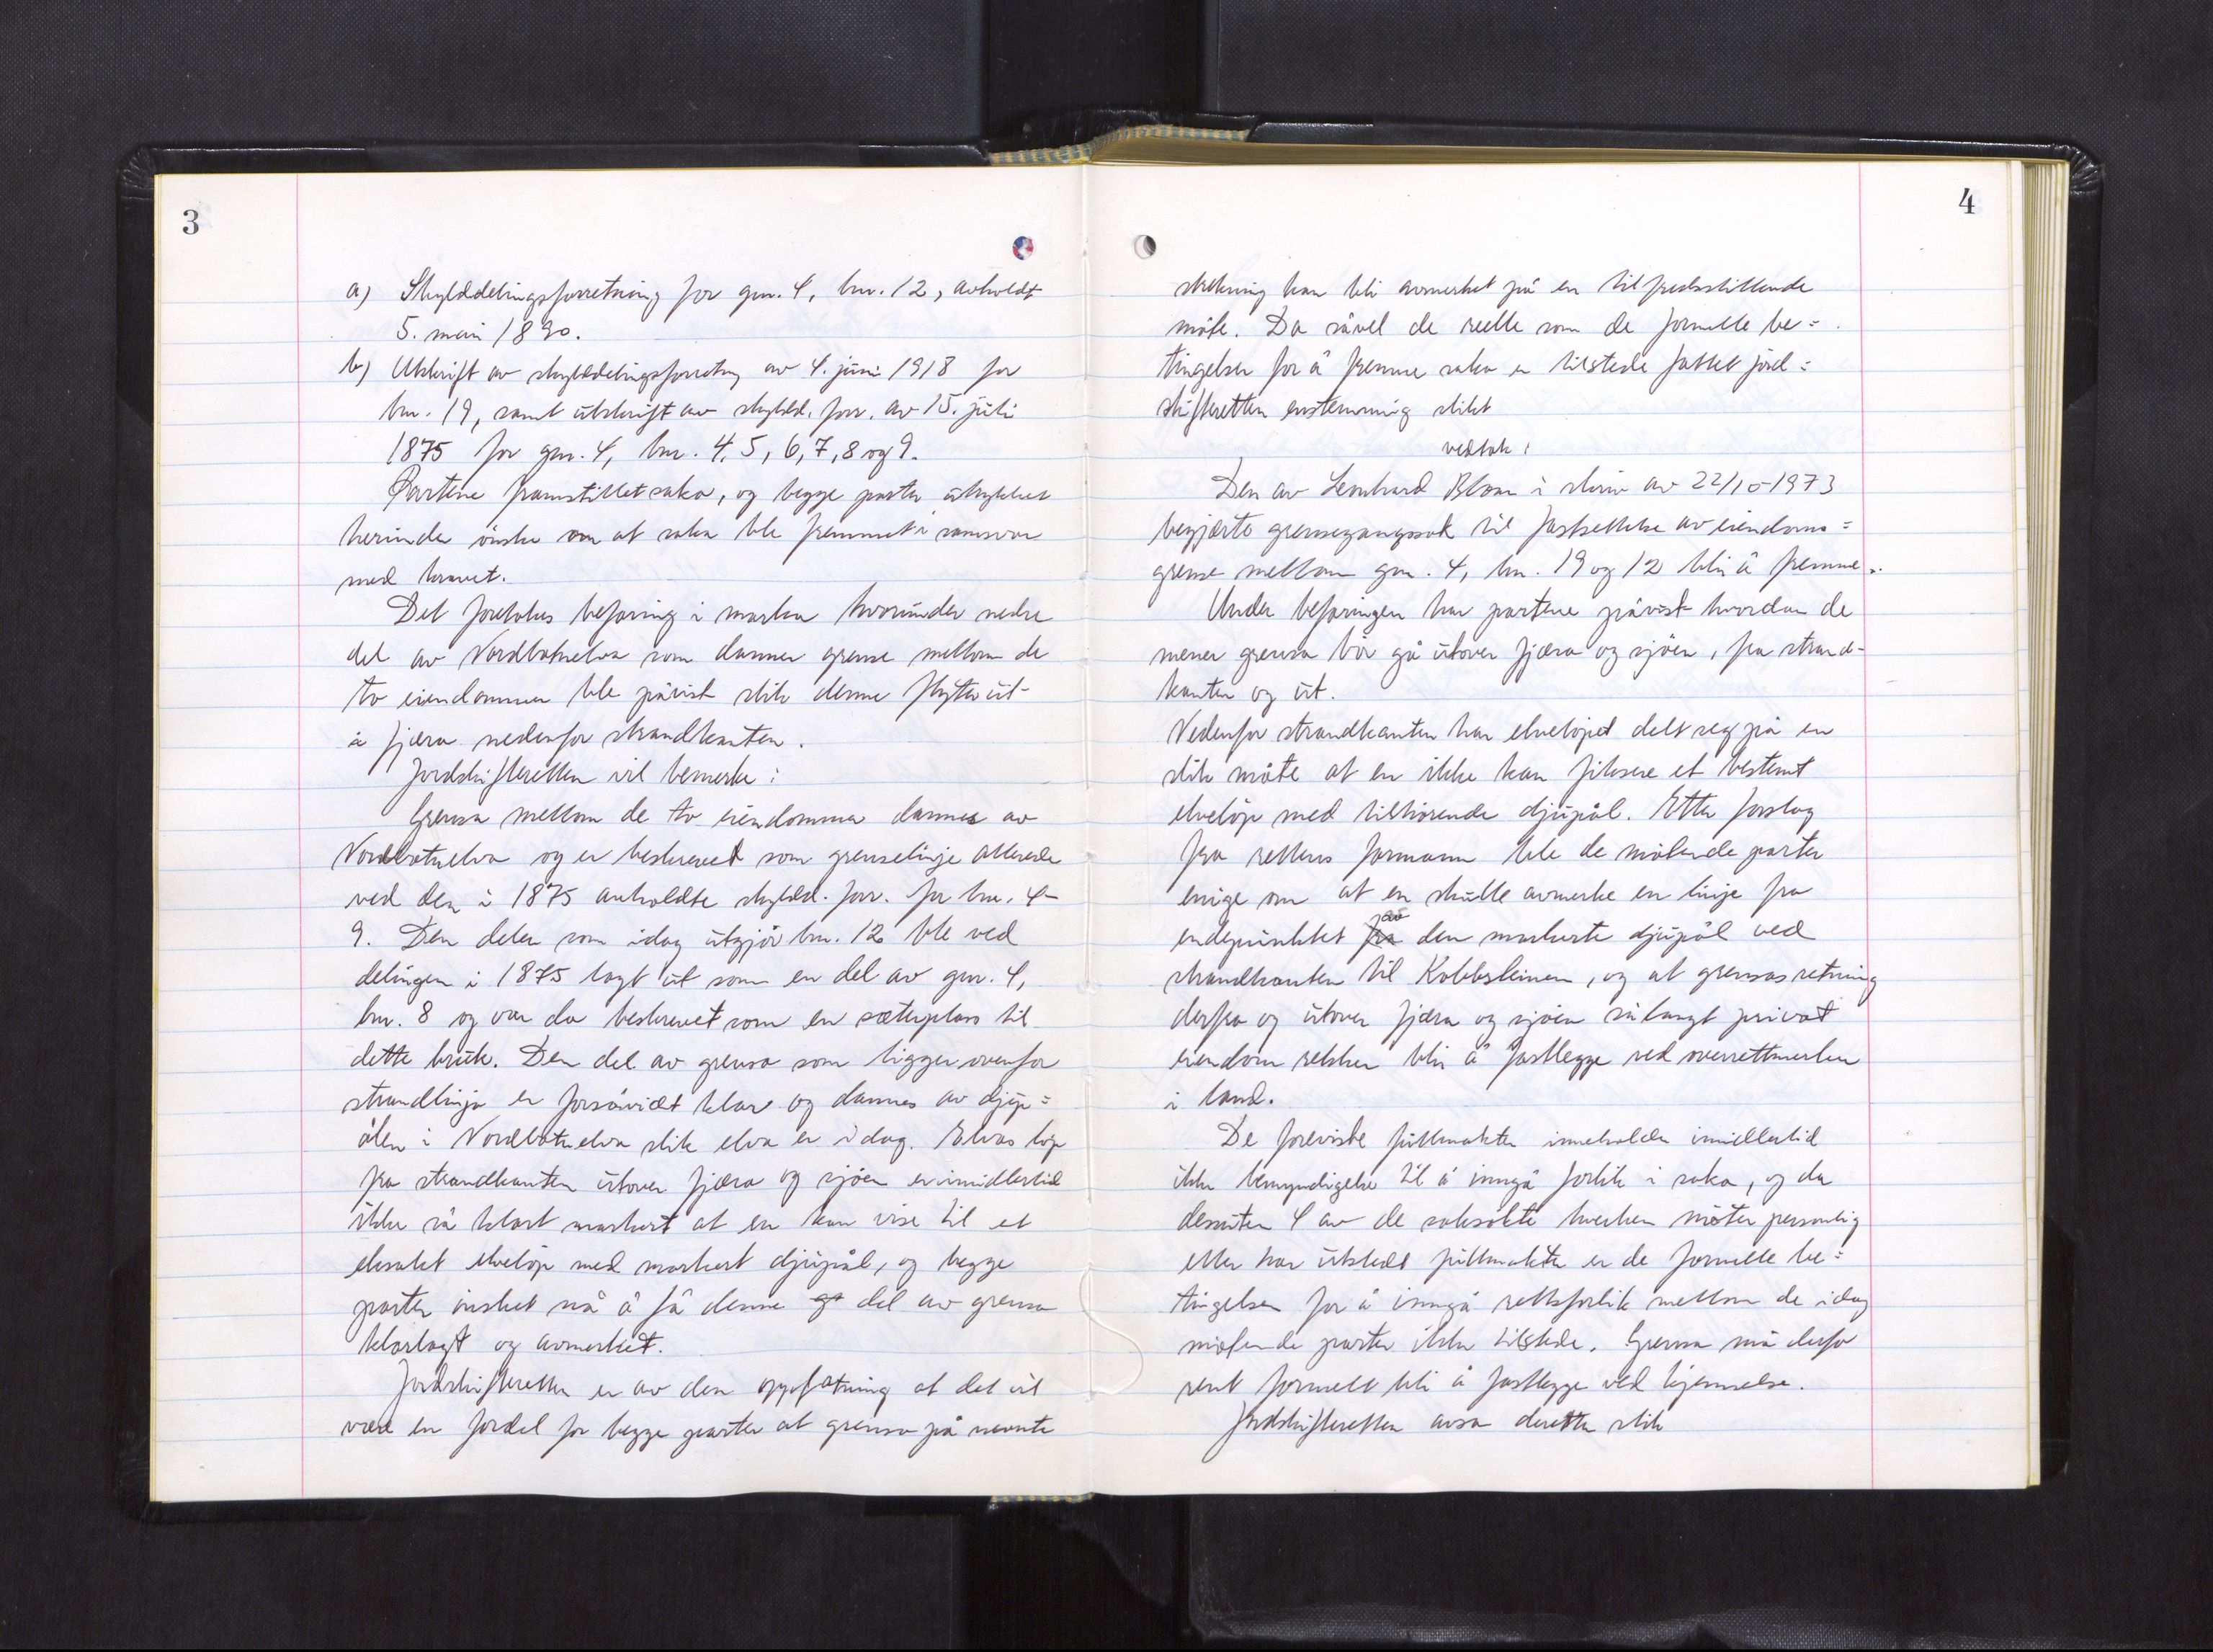 3
a) Skylddelingsforretning for gnr. 4, bnr. 12, avholdt
5. mai 1890.
b) Utskrift av skylddelingsforretng av 4. juni 1918 for
bnr. 19, samt utskrift av skyldd. forr. av 15. juli
1875 for gnr. 4, bnr. 4, 5, 6, 7, 8 og 9.
Partene framstillet saka, og begge parter uttrykket
herunder ønske om at saka ble fremmet i samsvar
med kravet.
Det foretokes befaring i marka hvorunder nedre
del av Nordbotnelva som danner grense mellom de
to eiendommer ble påvist slik denne flyter ut
i fjæra nedenfor strandkanten.
Jordskifteretten vil bemerke:
Grensa mellom de to eiendommer dannes av
Nordbotnelva og er beskrevet som grenselinje allerede
ved den i 1875 avholdte skyldd. forr. for bnr. 4-
9. Den delen som idag utgjør bnr. 12 ble ved
delingen i 1875 lagt ut som en del av gnr. 4,
bnr. 8 og var da beskrevet som en sæterplass til
dette bruk. Den del av grensa som ligger ovenfor
strandlinja er forsåvidt klar og dannes av djup=
ålen i Nordbotnelva slik elva er idag. Elvas løp
fra strandkanten utover fjæra og sjøen er imidlertid
ikke så klart markert at en kan vise til et
eksakt elveløp med markert djupål, og begge
parter ønsket nå å få denne del av grensa
klarlagt og avmerket.
Jordskifteretten er av den oppfatning at det vil
være en fordel for begge parter at grensa på nevnte
4
strekning kan bli avmerket på en tilfredsstillende
måte. Da såvel de reelle som de formelle be=
tingelser for å fremme saka er tilstede fattet jord=
skifteretten enstemmig slikt
vedtak:
Den av Leonhard Blom i skriv av 22/10-1973
begjærte grensegangssak til fastsettelse av eiendoms=
grense mellom gnr. 4, bnr. 19 og 12 blir å fremme.
Under befaringen har partene påvist hvordan de
mener grensa bør gå utover fjæra og sjøen, fra strand-
kanten og ut.
Nedenfor strandkanten har elveløpet delt seg på en
slik måte at en ikke kan fiksere et bestemt
elveløp med tilhørende djupål. Etter forslag
fra rettens formann ble de møtende parter
enige om at en skulle avmerke en linje fra
endepunktet av den markerte djupål ved
strandkanten til Kobbsteinen, og at grensas retning
derfra og utover fjæra og sjøen så langt privat
eiendom rekker blir å fastlegge ved overrettmerker
i land.
De foreviste fullmakter inneholder imidlertid
ikke bemyndigelse til å inngå forlik i saka, og da
dessuten 4 av de saksøkte hverken møter personlig
eller har utstedt fullmakter er de formelle be=
tingelser for å inngå rettsforlik mellom de idag
møtende parter ikke tilstede. Grensa må derfor
rent formelt bli å fastlegge ved kjennelse.
Jordskifteretten avsa deretter slik